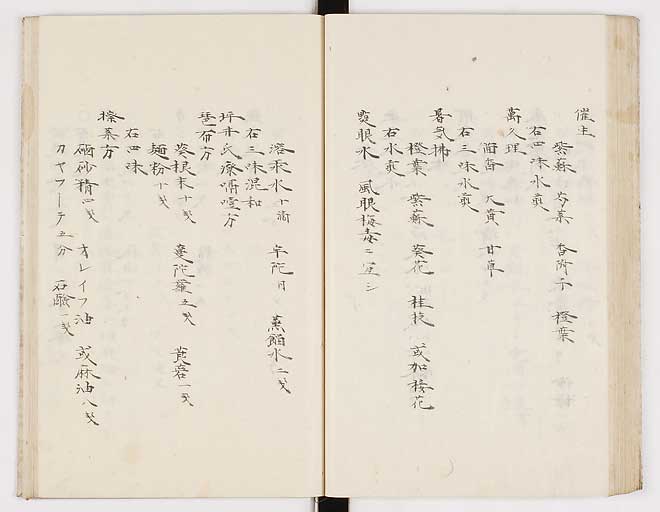 催生
紫蘇 香附子 橙葉
右四味水煎
萬久理
茴香 大黄 甘草
右三味水煎
暑気拂
橙葉 紫蘇 葵花 桂枝 或加接花
右水煎
雙眼水 風眼梅毒ニ宜シ
溶汞水十滴 蒸餾水二戔
右三味混和
坪井氏療嗝噎方
琶布方
葵根末十戔 曼陀羅五戔 莨菪一戔
麺粉十戔
右四味
擦薬方
硇砂精四戔 オレイフ油 或麻油八戔
カヤフーテ五分 石鹸一戔